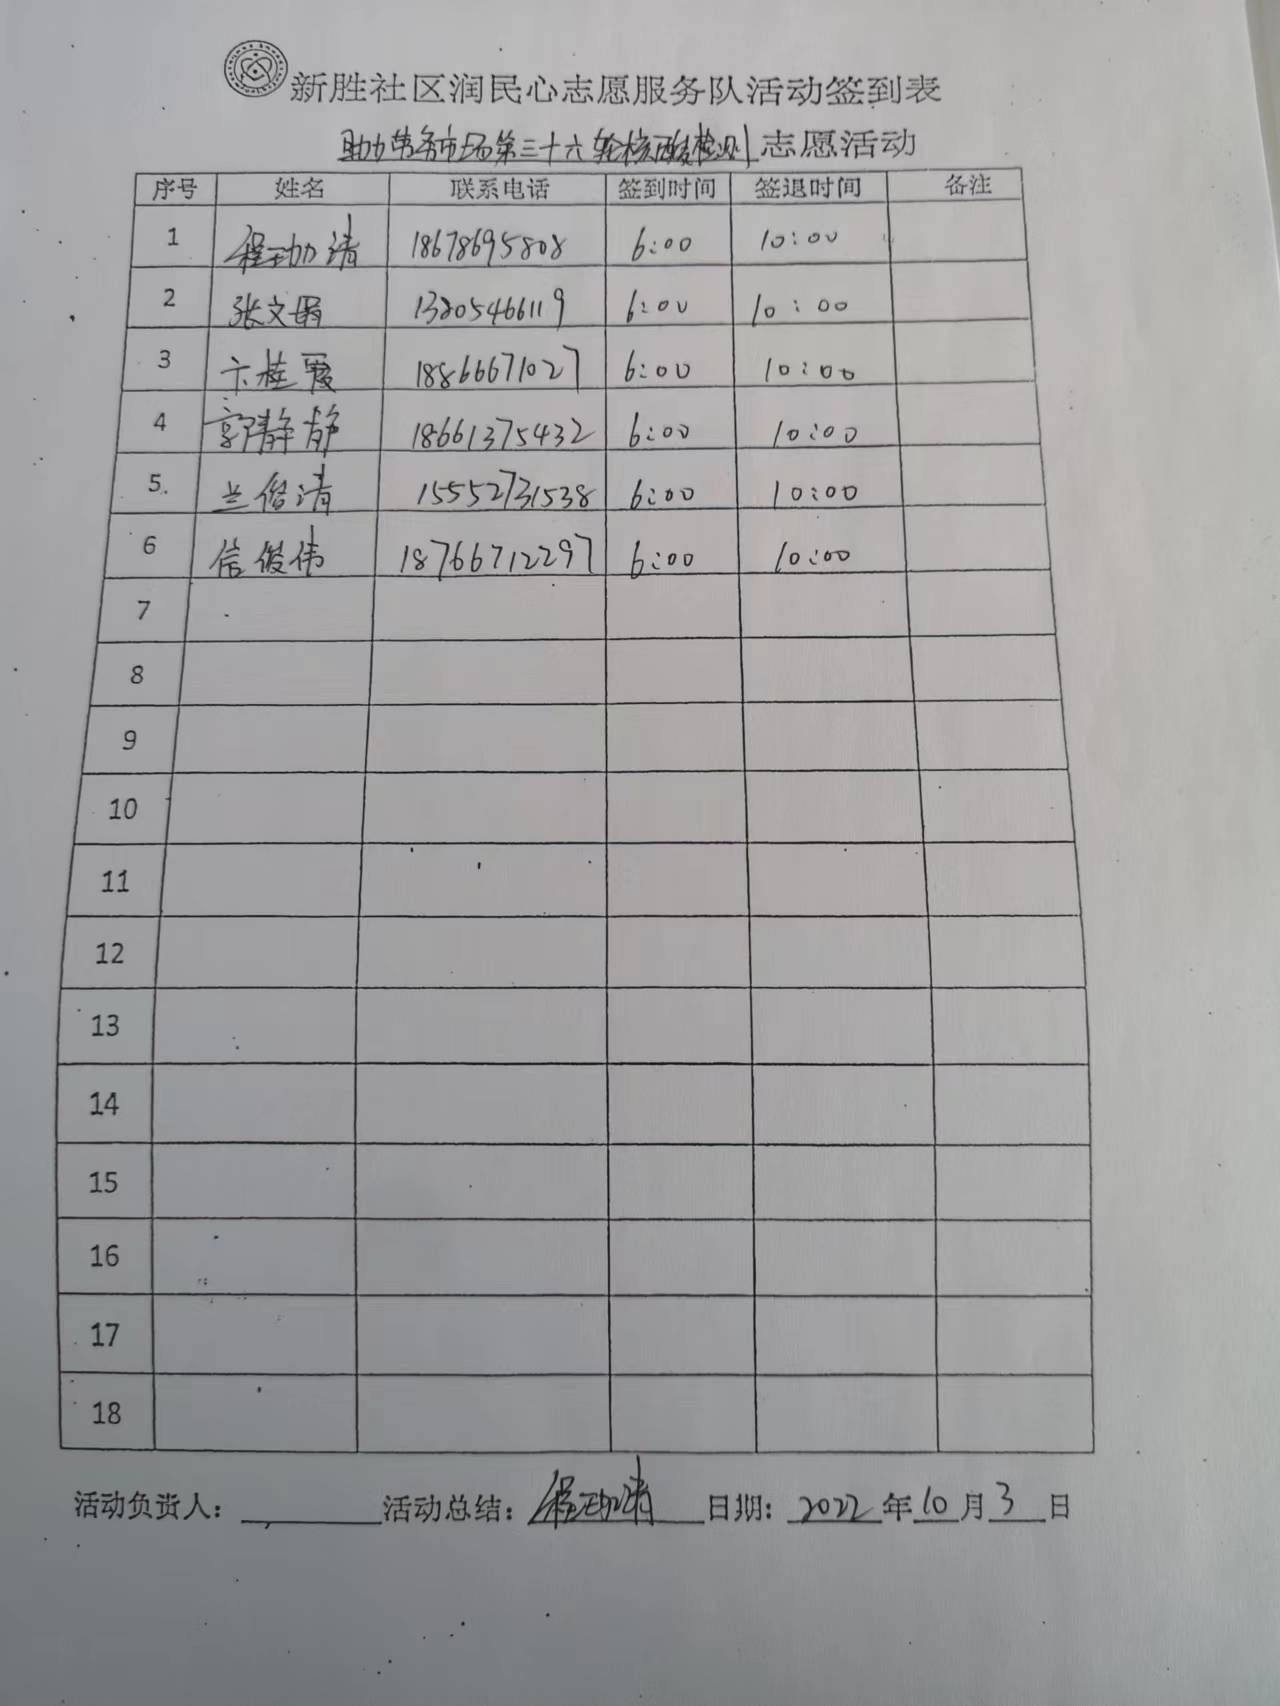 新胜社区润民心志愿服务队活动签到表
助力劳务市场第三十六轮核酸检测 志愿活动
序号 姓名 联系电话 签到时间 签退时间 备注
1 程 清 18678695808 6:00 10:00
2 张文娟 13805466119 6:00 10:00
3 卞桂霞 18866671027 6:00 10:00
4 郭静静 18661375432 6:00 10:00
5 兰俊清 15552731538 6:00 10:00
6 信俊伟 18766712297 6:00 10:00
7
8
9
10
11
12
13
14
15
16
17
18
活动负责人: 活动总结: 程 清 日期: 2022 年 10 月 3 日